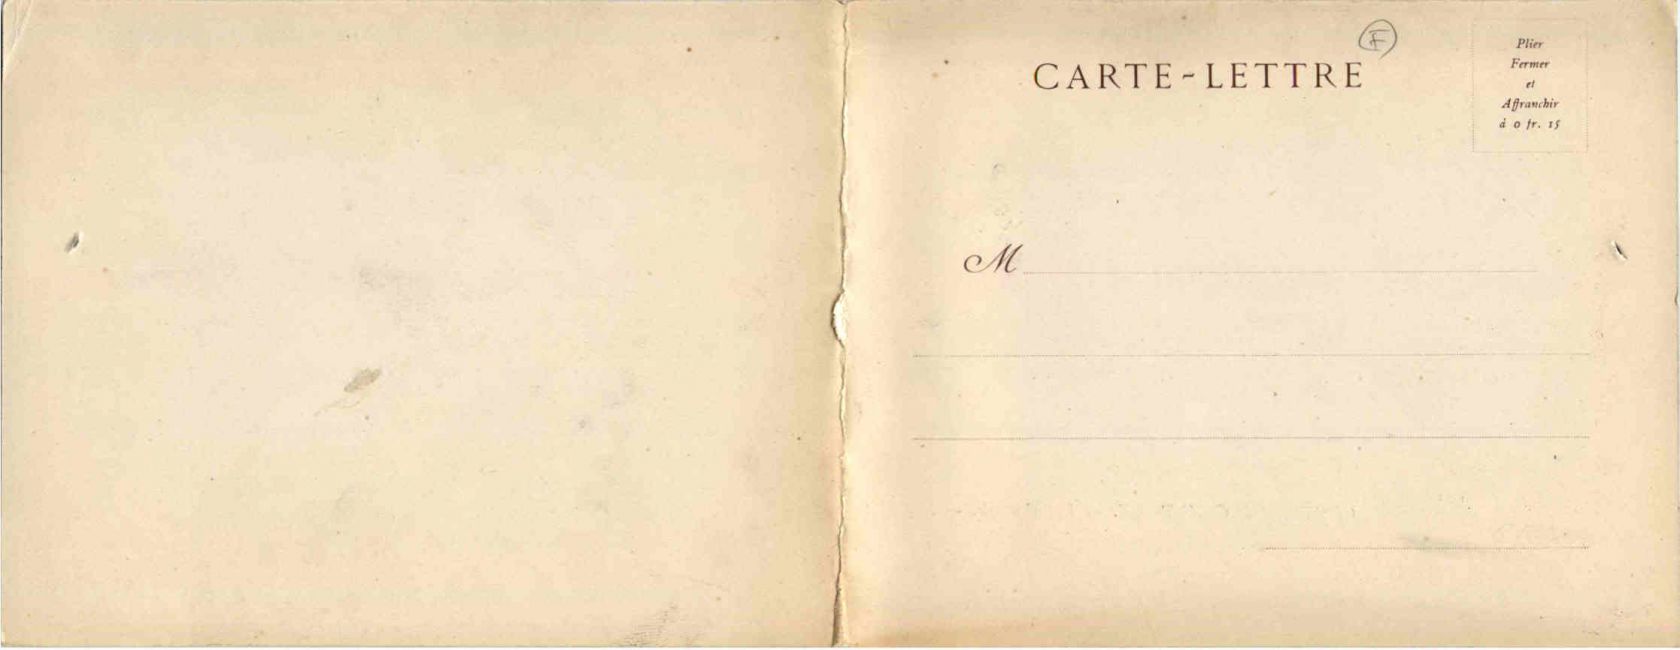 F
CARTE-LETTRE
Plier
Fermer
et
Affranchir
à 0 fr. 15
M